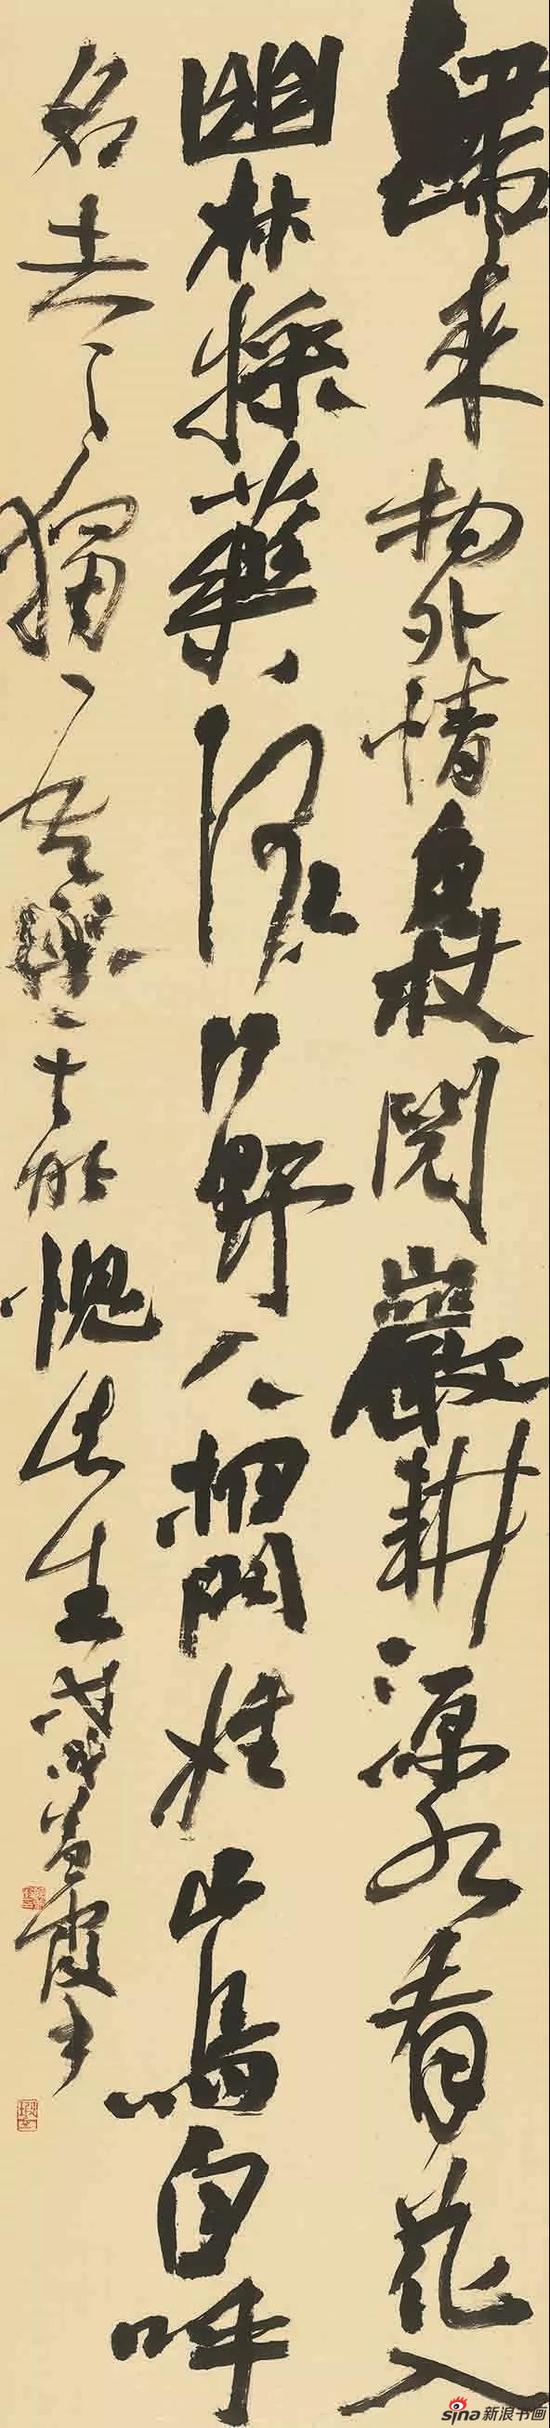 歸來物外情負杖閱巖耕源水看花入
幽林採藥野人相問姓山鳥自呼
名去々獨吾樂无能愧此生戊戌霞
sina新浪书画